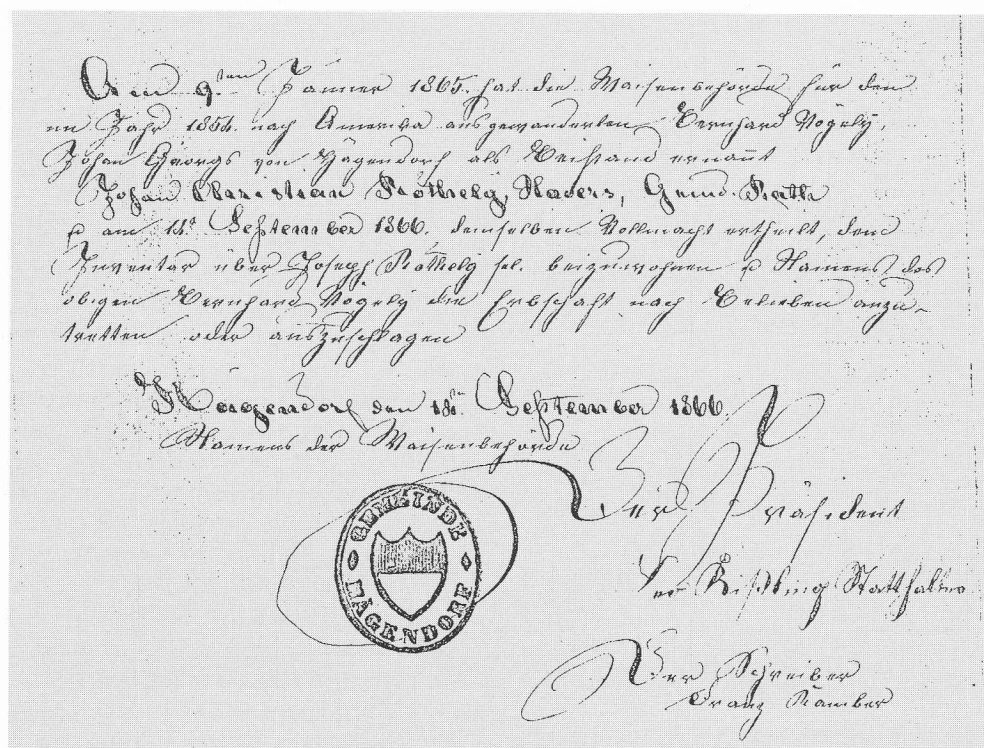 Am 9ten Jänner 1865. hat die Waisenbehörde für den
im Jahr 1854. nach Amerika ausgewanderten Bernhard Vögely,
Johan Georgs von Hägendorf als Beistand ernant
Johan Christian Röthely, Xavers, Gemd. Rath
u am 18. September 1866. demselben Vollmacht ertheilt, dem
Inventar über Joseph Röthely sel. beizuwohnen u Namens des
obigen Bernhard Vögely die Erbschaft nach Belieben anzu-
tretten oder auszuschlagen
Hägendorf den 18. September 1866.
Namens der Waisenbehörde
Der Präsident
Kißling Statthalter
GEMEINDE
HÄGENDORF
Der Schreiber
Franz Kamber